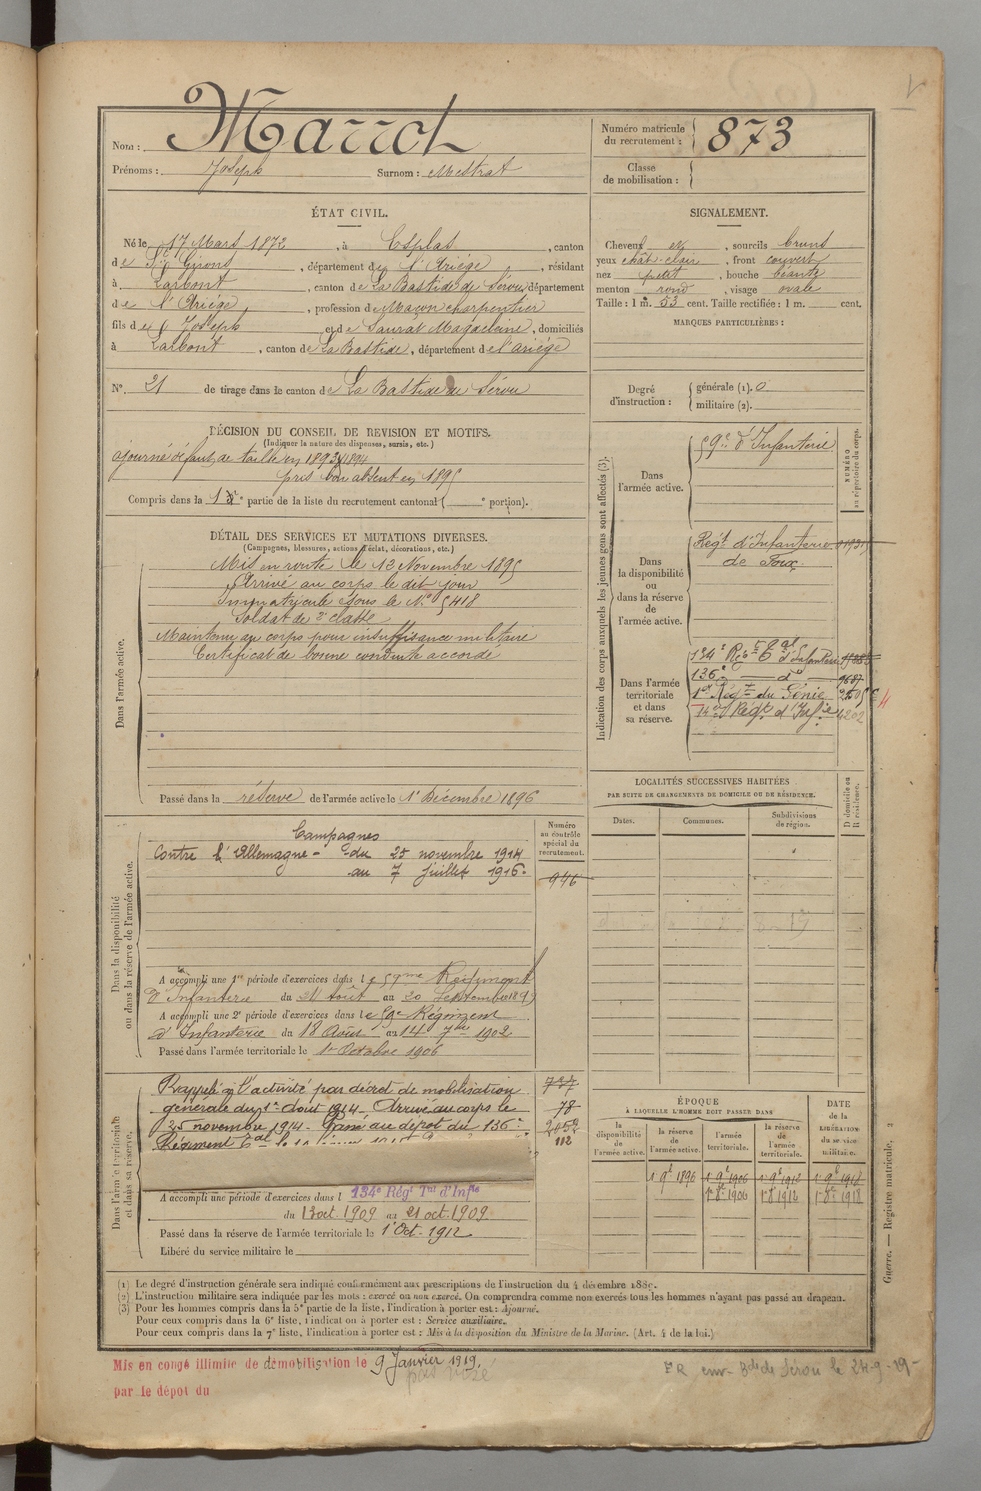 Nom : Marrot
Prénoms : Joseph Surnom : Mestrat
Numéro matricule du recrutement : 873
Classe de mobilisation :
ÉTAT CIVIL.
Né le 17 Mars 1872, à Esplas, canton
de St Girons, département de l'Ariège, résidant
à Larbont, canton de La Bastide de Sérou, département
de l'Ariège, profession de Maçon charpentier
fils de Joseph et de Saurat Magdeleine, domiciliés
à Larbont, canton de La Bastide, département de l'ariège
N° 21 de tirage dans le canton de La Bastide de Sérou
SIGNALEMENT.
Cheveux et, sourcils bruns
yeux chât-clair, front couvert
nez petit, bouche béante
menton rond, visage ovale
Taille : 1 m. 53 cent. Taille rectifiée : 1 m. cent.
MARQUES PARTICULIÈRES :
Degré d'instruction : générale (1). 0
militaire (2).
DÉCISION DU CONSEIL DE REVISION ET MOTIFS.
(Indiquer la nature des dispenses, sursis, etc.)
ajourné défaut de taille en 1893, 1894
pris bon absent en 1895
Compris dans la 1e partie de la liste du recrutement cantonal ( ° portion).
DÉTAIL DES SERVICES ET MUTATIONS DIVERSES.
(Campagnes, blessures, actions d'éclat, décorations, etc.)
Dans l'armée active.
Mis en route le 13 Novembre 1895
Arrivé au corps le dit jour
Immatriculé sous le N° 5418
Soldat de 2e classe
Maintenu au corps pour insuffisance militaire
Certificat de bonne conduite accordé
Passé dans la réserve de l'armée active le 1er Décembre 1896
Indication des corps auxquels les jeunes gens sont affectés (3).
NUMÉRO au répertoire du corps.
Dans l'armée active.
59e d'Infanterie
Dans la disponibilité ou dans la réserve de l'armée active.
Regt d'Infanterie
de Foix
Dans l'armée territoriale et dans sa réserve.
134e Regt Tal d'Infanterie
136e — do —
1er Régt du Génie
14e Régt d'Infie 4202
LOCALITÉS SUCCESSIVES HABITÉES
PAR SUITE DE CHANGEMENTS DE DOMICILE OU DE RÉSIDENCE.
Dates. Communes. Subdivisions de région. D domicile ou R résidence.
Dans la disponibilité ou dans la réserve de l'armée active.
Numéro au contrôle spécial du recrutement.
946
Campagnes
Contre l'Allemagne - du 25 novembre 1914
au 7 juillet 1916.
A accompli une 1re période d'exercices dans le 59me Régiment
d'Infanterie du 24 août au 20 Septembre 1899
A accompli une 2e période d'exercices dans le 59e Régiment
d'Infanterie du 18 Août au 14 7bre 1902
Passé dans l'armée territoriale le 1er Octobre 1906
Dans l'armée territoriale et dans sa réserve.
Rappelé à l'activité par décret de mobilisation
générale du 1er Août 1914 - Arrivé au corps le
25 novembre 1914 - Passé au dépôt du 136e
Régiment Tal
78
2052
112
A accompli une période d'exercices dans l 134e Régt Tal d'Infie
du 13 oct 1909 au 21 oct 1909
Passé dans la réserve de l'armée territoriale le 1er Oct. 1912
Libéré du service militaire le
ÉPOQUE
À LAQUELLE L'HOMME DOIT PASSER DANS
DATE de la LIBÉRATION du service militaire.
la disponibilité de l'armée active. la réserve de l'armée active. l'armée territoriale. la réserve de l'armée territoriale.
1er 9e 1896 1er 9e 1906 1er 9e 1912 1er 9e 1918
1er 8e 1906 1er 8e 1912 1er 8e 1918
Guerre. — Registre matricule. 2
(1) Le degré d'instruction générale sera indiqué conformément aux prescriptions de l'instruction du 4 décembre 1889.
(2) L'instruction militaire sera indiquée par les mots : exercé ou non exercé. On comprendra comme non exercés tous les hommes n'ayant pas passé au drapeau.
(3) Pour les hommes compris dans la 5e partie de la liste, l'indication à porter est : Ajourné.
Pour ceux compris dans la 6e liste, l'indication à porter est : Service auxiliaire.
Pour ceux compris dans la 7e liste, l'indication à porter est : Mis à la disposition du Ministre de la Marine. (Art. 4 de la loi.)
Mis en congé illimité de démobilisation le 9 Janvier 1919.
par le dépôt du
FR env. Bde de Sérou le 24-9-19-